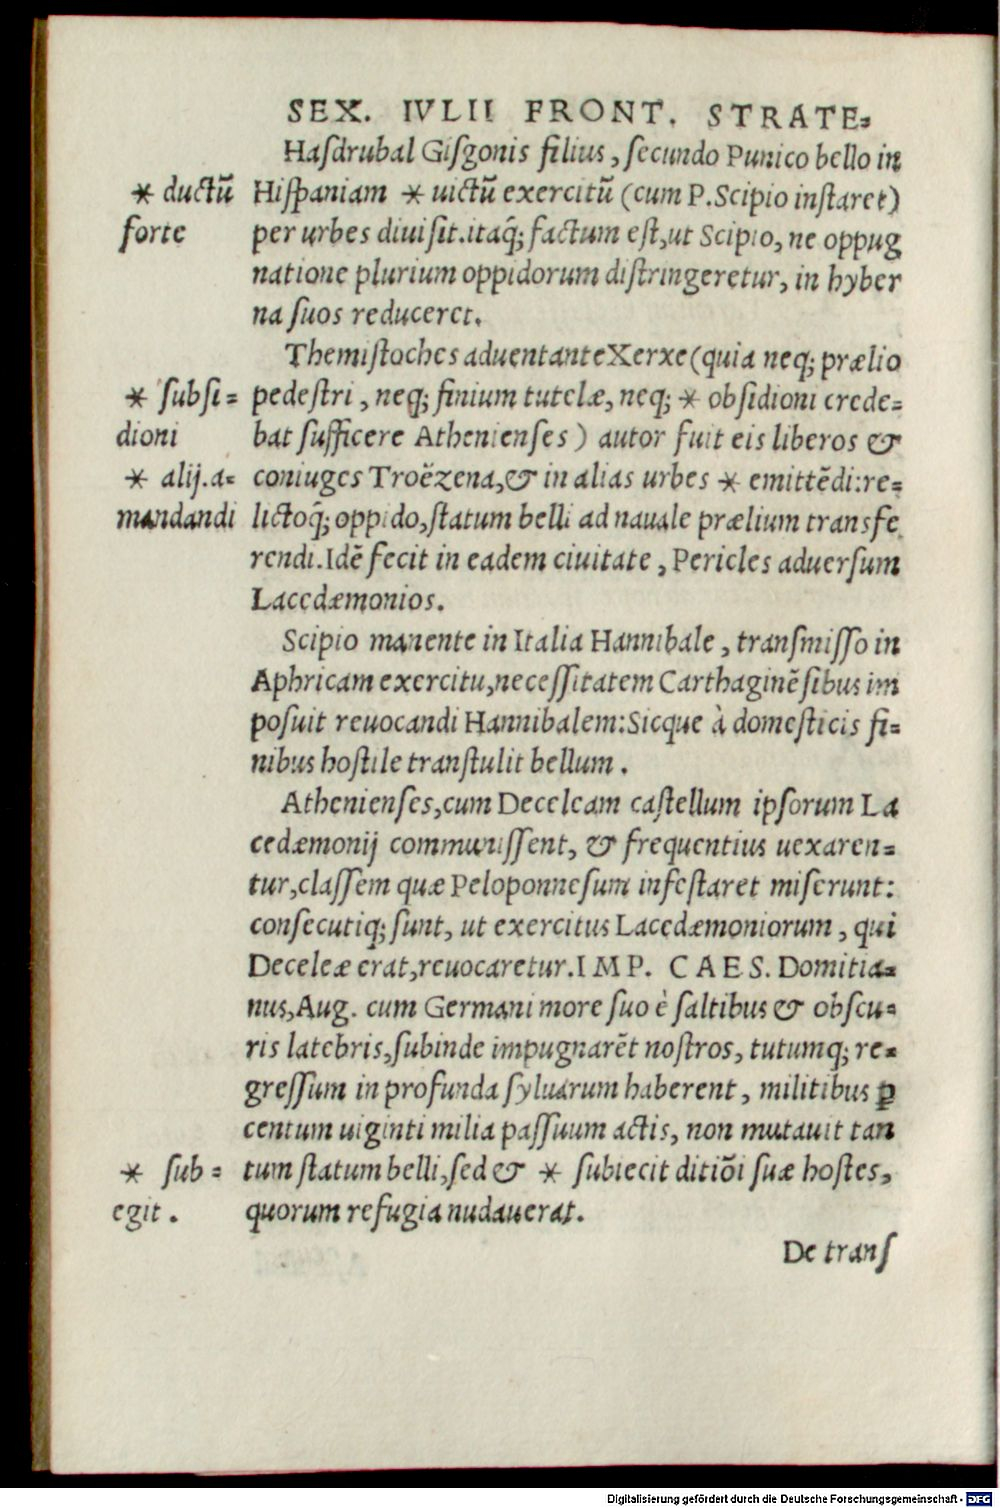 SEX. IVLII FRONT. STRATE=
Haſdrubal Giſgonis filius, ſecundo Punico bello in
* ductū Hiſpaniam * uictū exercitū (cum P. Scipio inſtaret)
forte per urbes diuiſit. itaq; factum eſt, ut Scipio, ne oppug
natione plurium oppidorum diſtringeretur, in hyber
na ſuos reduceret.
Themiſtocles aduentante Xerxe (quia neq; prælio
* ſubſi= pedeſtri, neq; finium tutelæ, neq; * obſidioni crede=
dioni bat ſufficere Athenienſes) autor fuit eis liberos &
* alij. a= coniuges Troēzena, & in alias urbes * emittēdi: re=
mandandi lictoq̃; oppido, ſtatum belli ad nauale prælium transfe
rendi. Idē fecit in eadem ciuitate, Pericles aduerſum
Lacedæmonios.
Scipio manente in Italia Hannibale, tranſmiſſo in
Aphricam exercitu, neceſſitatem Carthaginēſibus im
poſuit reuocandi Hannibalem: Sicque à domeſticis fi=
nibus hoſtile tranſtulit bellum.
Athenienſes, cum Deceleam caſtellum ipſorum La
cedæmonij communiſſent, & frequentius uexaren=
tur, claſſem quæ Peloponneſum infeſtaret miſerunt:
conſecutiq; ſunt, ut exercitus Lacedæmoniorum, qui
Deceleæ erat, reuocaretur. IMP. CAES. Domitia=
nus, Aug. cum Germani more ſuo è ſaltibus & obſcu=
ris latebris, ſubinde impugnarēt noſtros, tutumq; re=
greſſum in profunda ſyluarum haberent, militibus ꝑ
centum uiginti milia paſſuum actis, non mutauit tan
* ſub= tum ſtatum belli, ſed & * ſubiecit ditiōi ſuæ hoſtes,
egit. quorum refugia nudauerat.
De tranſ
Digitalisierung gefördert durch die Deutsche Forschungsgemeinschaft - DFG